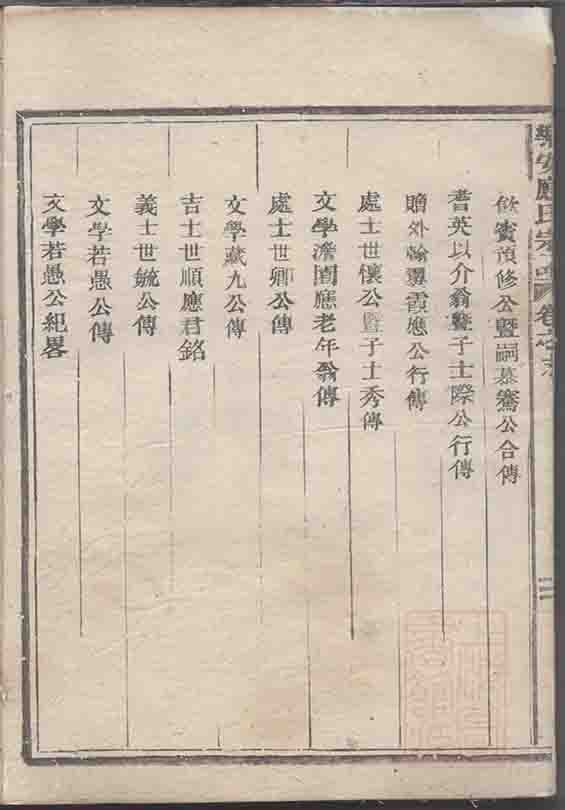 樂安應氏宗譜 卷之 二
飲賓頑修公暨嗣慕騫公合傳
耆英以介翁暨子士際公行傳
贈外翰翼霞應公行傳
處士世懷公暨子士秀傳
文學澹園應老年翁傳
處士世卿公傳
文學藏九公傳
吉士世順應君銘
義士世毓公傳
文學若愚公傳
文學若愚公紀畧